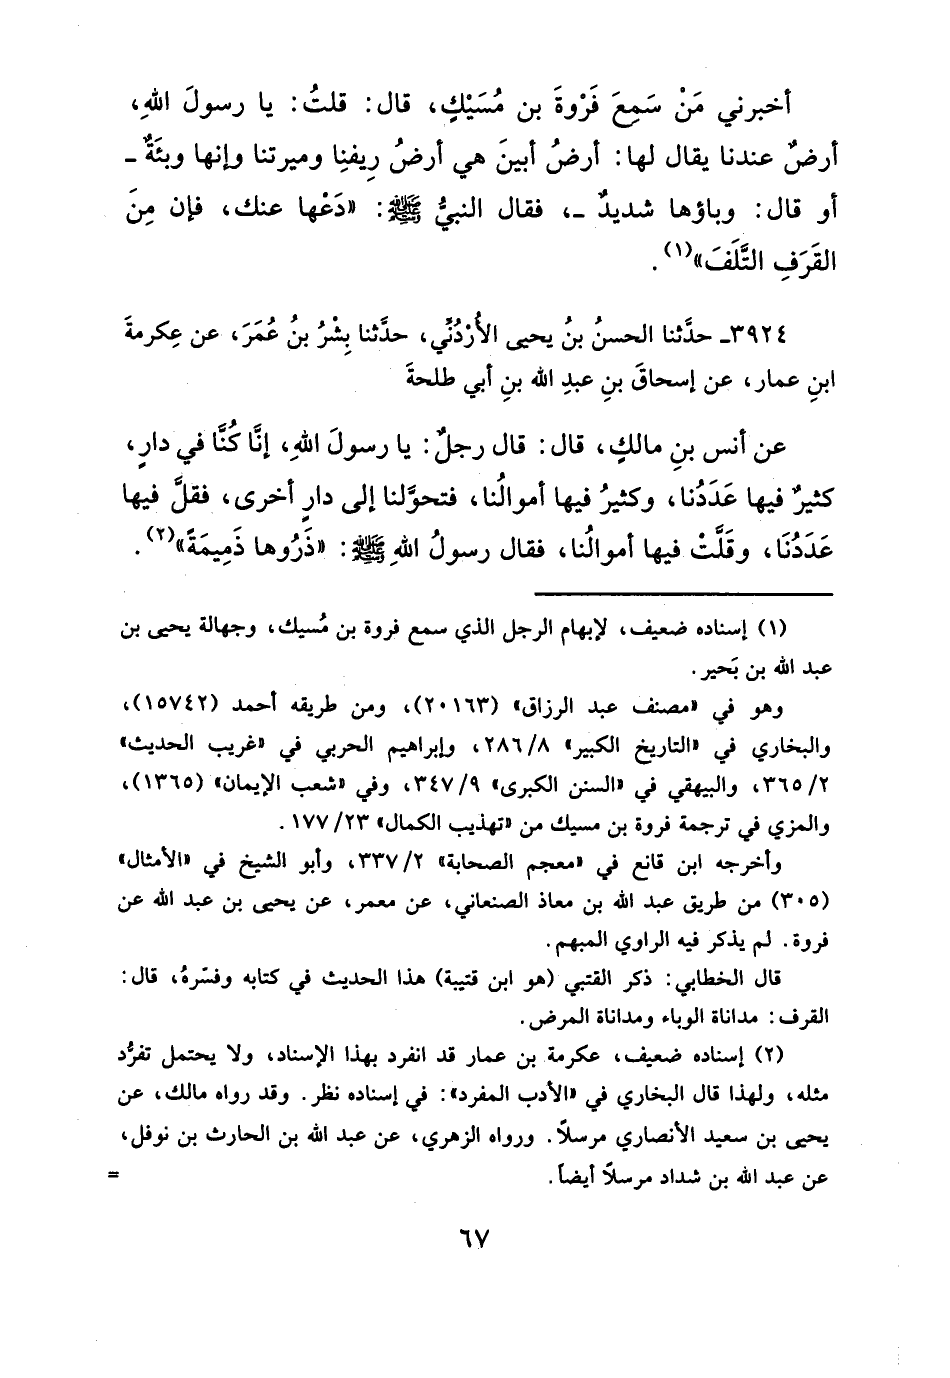 أخبرني مَنْ سَمِعَ فَرْوةَ بن مُسَيْكٍ، قال: قلتُ: يا رسولَ اللهِ،
أرضٌ عندنا يقال لها: أرضُ أبينَ هي أرضُ رِيفنِا وميرتنا وإنها وبئَةٌ -
أو قال: وباؤها شديدٌ -، فقال النبيُّ ﷺ: «دَعْها عنك، فإن مِنَ
القَرَفِ التَّلَفَ»(١).
٣٩٢٤- حدَّثنا الحسنُ بنُ يحيى الأُرْدُنِّي، حدَّثنا بِشْرُ بنُ عُمَرَ، عن عِكرمةَ
ابنِ عمار، عن إسحاقَ بنِ عبدِ الله بنِ أبي طلحةَ
عن أنس بنِ مالكٍ، قال: قال رجلٌ: يا رسولَ اللهِ، إنَّا كُنَّا في دارٍ،
كثيرٌ فيها عَدَدُنا، وكثيرُ فيها أموالُنا، فتحوَّلنا إلى دارٍ أخرى، فقلَّ فيها
عَدَدُنَا، وقَلَّتْ فيها أموالُنا، فقال رسولُ اللهِ ﷺ: «ذَرُوها ذَمِيمَةً»(٢).
(١) إسناده ضعيف، لإبهام الرجل الذي سمع فروة بن مُسيك، وجهالة يحيى بن
عبد الله بن بَحير.
وهو في «مصنف عبد الرزاق» (٢٠١٦٣)، ومن طريقه أحمد (١٥٧٤٢)،
والبخاري في «التاريخ الكبير» ٨/ ٢٨٦، وإبراهيم الحربي في «غريب الحديث»
٢/ ٣٦٥، والبيهقي في «السنن الكبرى» ٩/ ٣٤٧، وفي «شعب الإيمان» (١٣٦٥)،
والمزي في ترجمة فروة بن مسيك من «تهذيب الكمال» ٢٣/ ١٧٧.
وأخرجه ابن قانع في «معجم الصحابة» ٢/ ٣٣٧، وأبو الشيخ في «الأمثال»
(٣٠٥) من طريق عبد الله بن معاذ الصنعاني، عن معمر، عن يحيى بن عبد الله عن
فروة. لم يذكر فيه الراوي المبهم.
قال الخطابي: ذكر القتبي (هو ابن قتيبة) هذا الحديث في كتابه وفسّرهُ، قال:
القرف: مداناة الوباء ومداناة المرض.
(٢) إسناده ضعيف، عكرمة بن عمار قد انفرد بهذا الإسناد، ولا يحتمل تفرُّد
مثله، ولهذا قال البخاري في «الأدب المفرد»: في إسناده نظر. وقد رواه مالك، عن
يحيى بن سعيد الأنصاري مرسلاً. ورواه الزهري، عن عبد الله بن الحارث بن نوفل،
عن عبد الله بن شداد مرسلاً أيضاً. =
٦٧